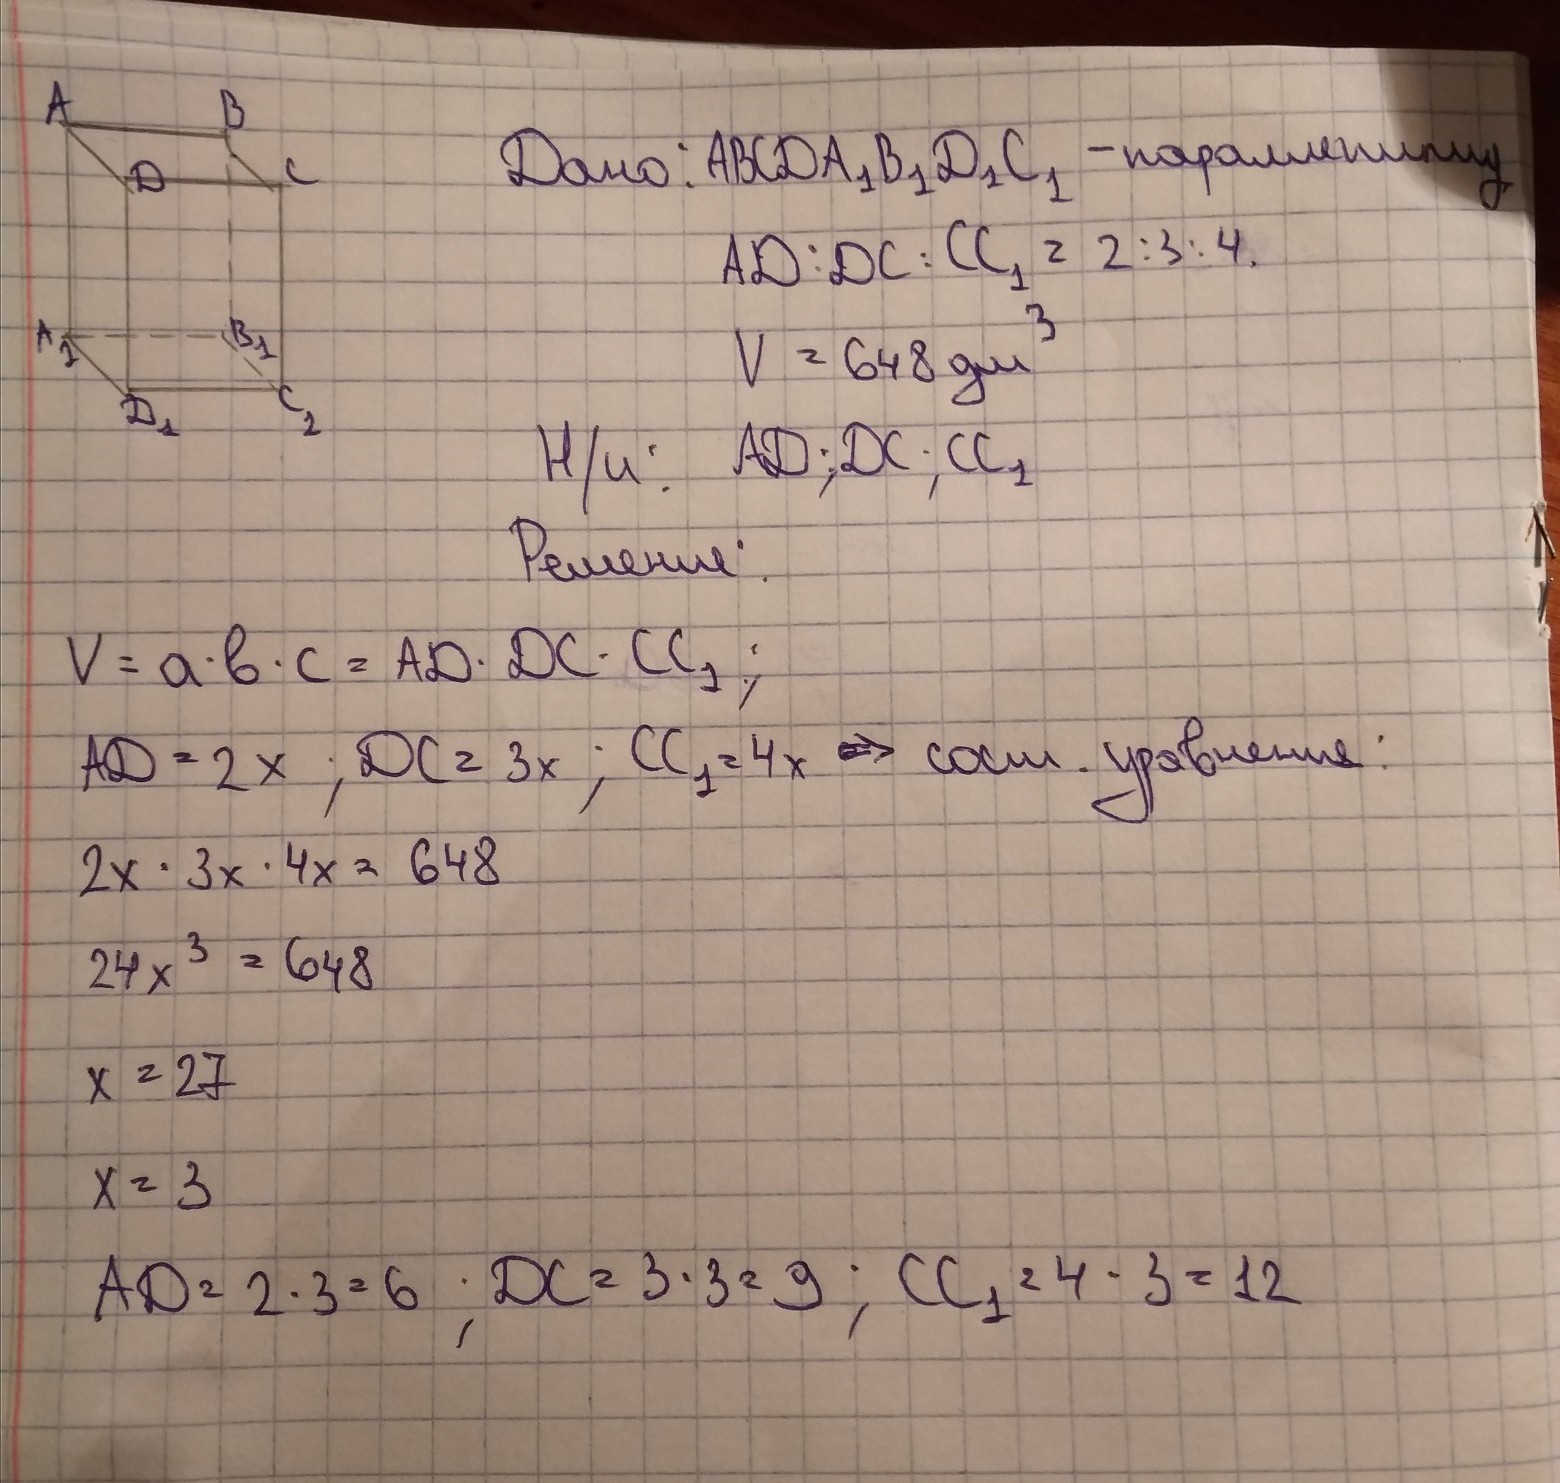 A B
D C
A₁ B₁
D₁ C₂
Дано: ABCDA₁B₁D₁C₁ - параллепипед
AD:DC:CC₁ = 2:3:4.
V = 648 дм³
Н/и: AD; DC; CC₁
Решение:
V = a·b·c = AD·DC·CC₁;
AD = 2x; DC = 3x; CC₁ = 4x ⇒ сост. уравнение:
2x · 3x · 4x = 648
24x³ = 648
x = 27
x = 3
AD = 2·3 = 6; DC = 3·3 = 9; CC₁ = 4·3 = 12